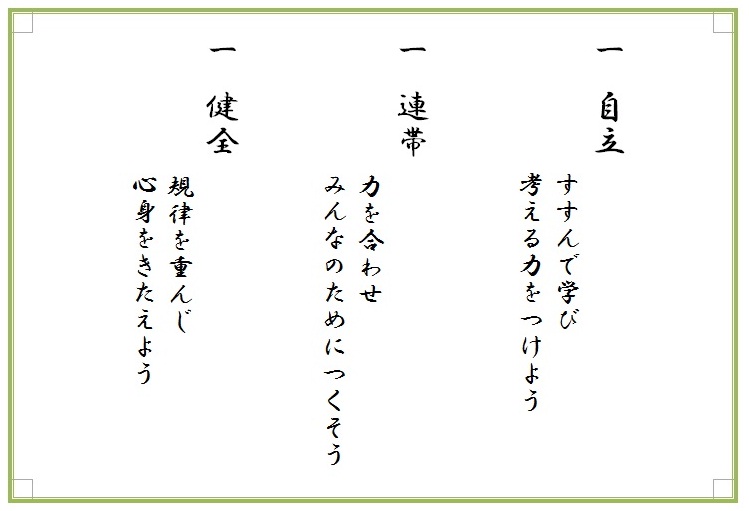 一 自立
すすんで学び
考える力をつけよう
一 連帯
力を合わせ
みんなのためにつくそう
一 健全
規律を重んじ
心身をきたえよう